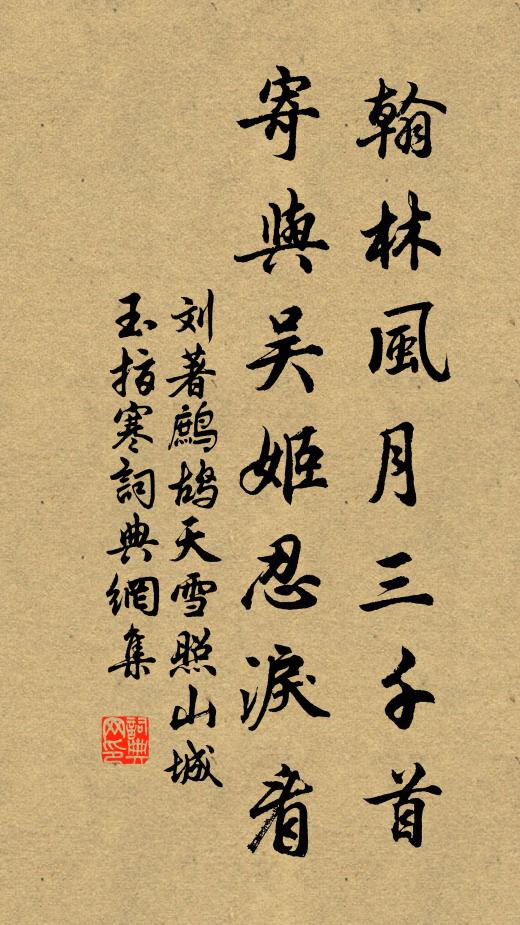 翰林風月三千首
寄與吴姬忍淚看
刘著鷓鴣天雪照山城
玉指寒詞典網集
詞典网印